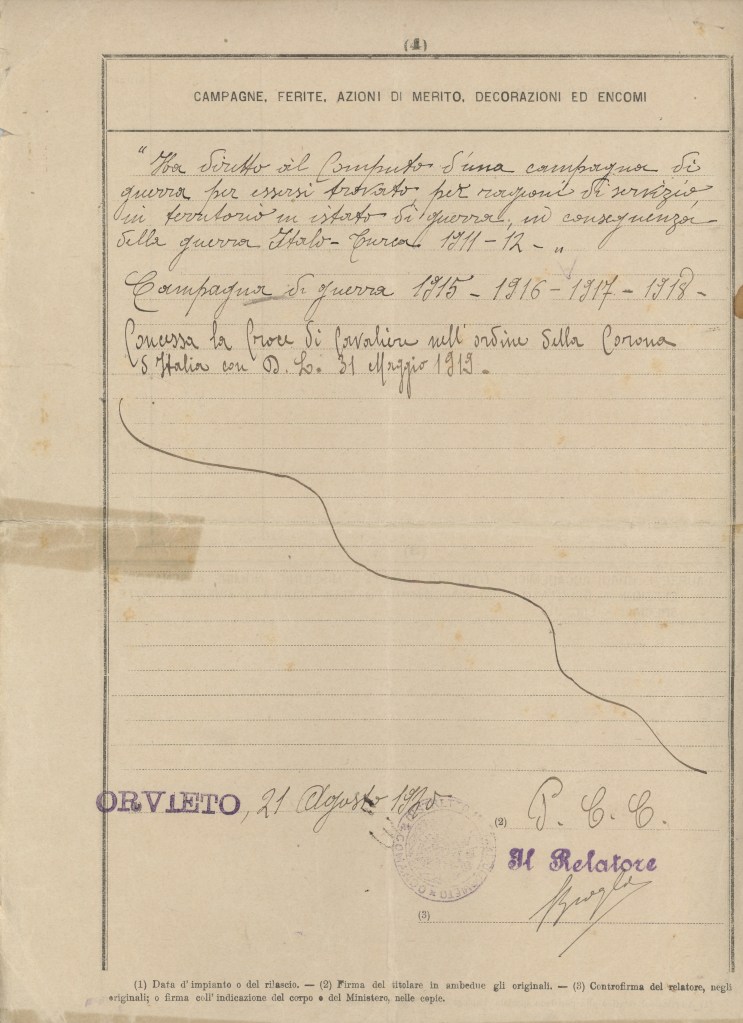 (4)
CAMPAGNE, FERITE, AZIONI DI MERITO, DECORAZIONI ED ENCOMI
"Ha diritto al Computo d'una campagna di
guerra per essersi trovato per ragioni di servizio,
in territorio in istato di guerra, in conseguenza
della guerra Italo-Turca 1911-12 - „
Campagna di guerra 1915 - 1916 - 1917 - 1918 -
Concessa la Croce di Cavaliere nell'ordine della Corona
d'Italia con D. L. 31 Maggio 1919.
ORVIETO, 21 Agosto 1920
(2) P. C. C.
Il Relatore
(3)
(1) Data d'impianto o del rilascio. — (2) Firma del titolare in ambedue gli originali. — (3) Controfirma del relatore, negli
originali; o firma coll'indicazione del corpo o del Ministero, nelle copie.